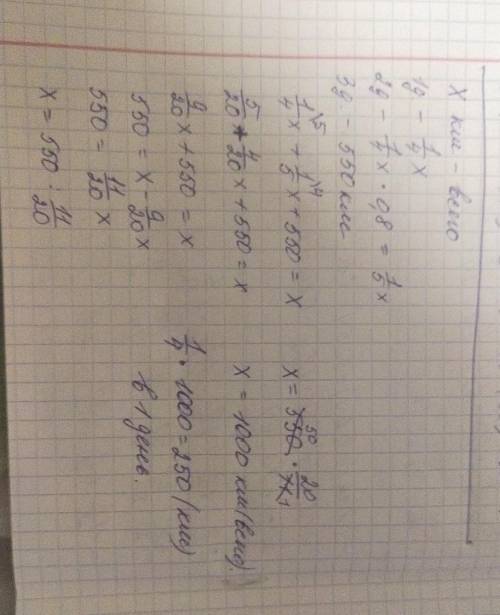 X км - всего
1g - 1/4 x
2g - 1/4 x · 0,8 = 1/5 x
3g. - 550 км
1/4 x + 1/5 x + 550 = x
5/20 + 4/20 x + 550 = x
9/20 x + 550 = x
550 = x - 9/20 x
550 = 11/20 x
x = 550 : 11/20
x = 550 · 20/11
x = 1000 км (всего).
1/4 · 1000 = 250 (км)
в 1 день.